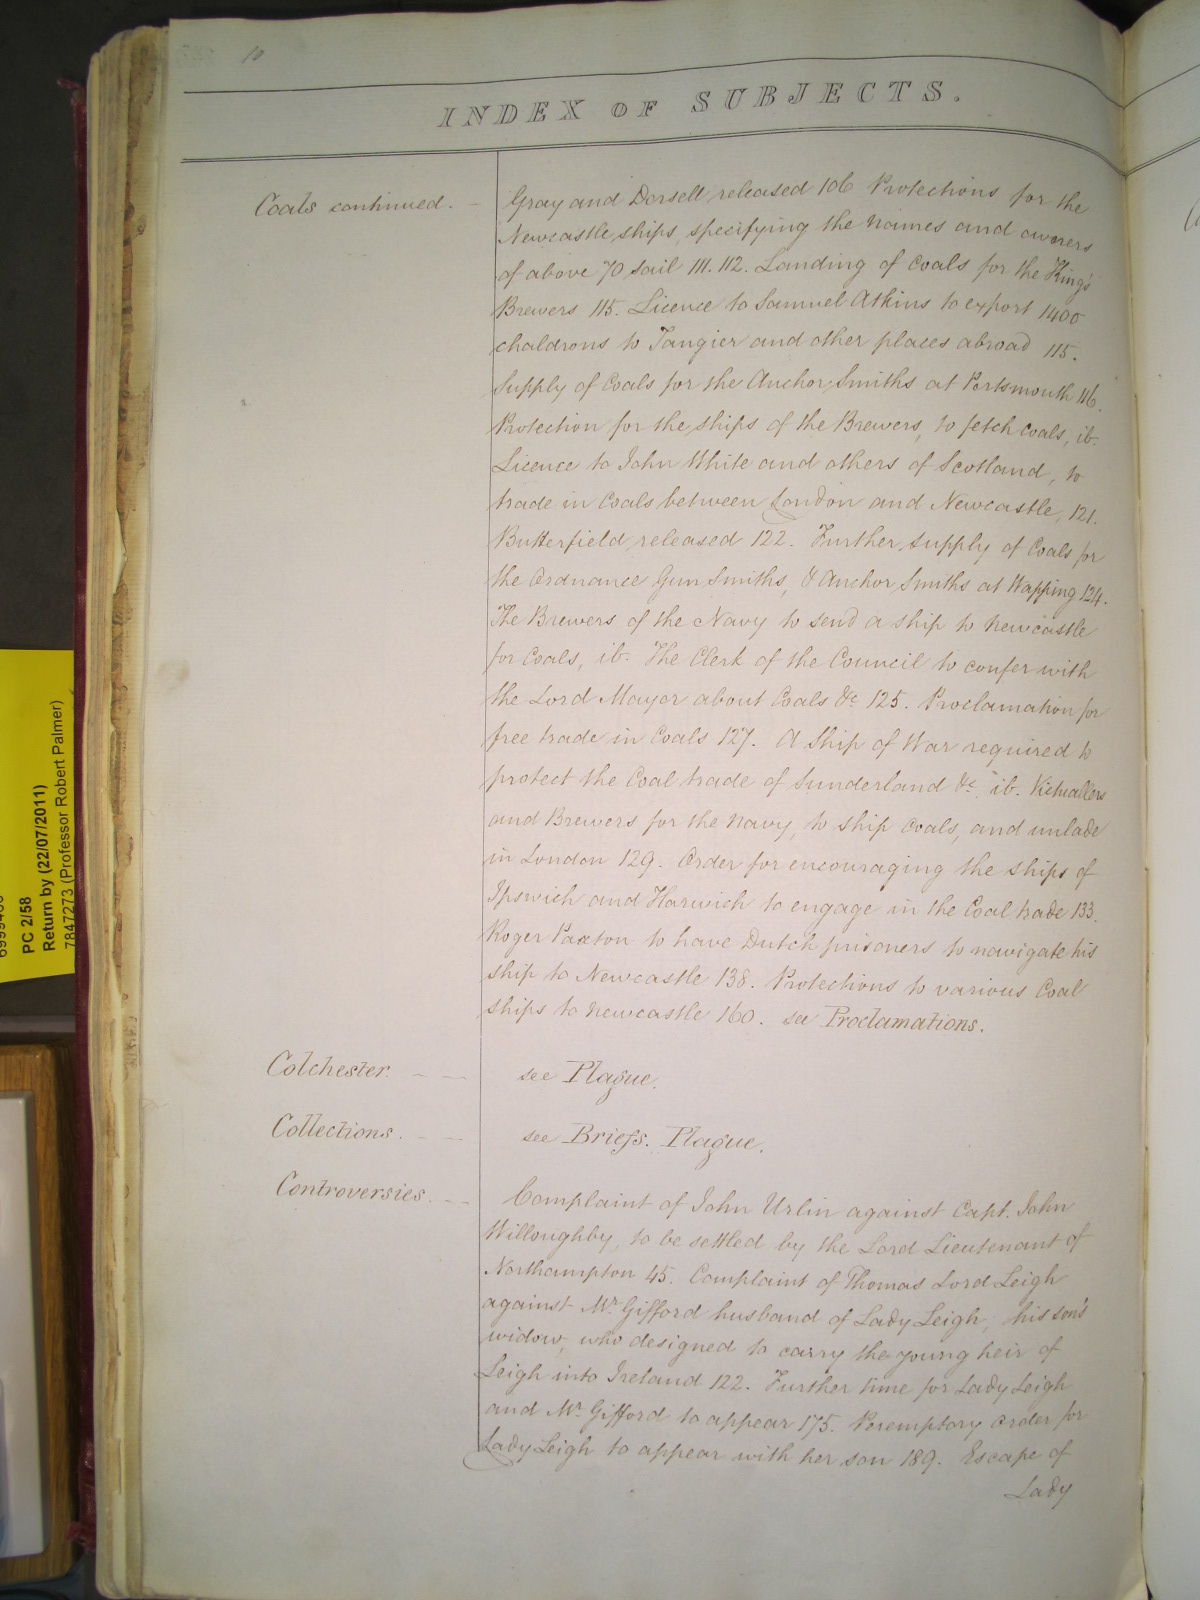 10
INDEX OF SUBJECTS.
Coals continued. -
Gray and Dorsell released 106 Protections for the
Newcastle ships, specifying the names and owners
of above 70 sail 111. 112. Landing of Coals for the King's
Brewers 115. Licence to Samuel Atkins to export 1400
chaldrons to Tangier and other places abroad 115.
Supply of Coals for the Anchor Smiths at Portsmouth 116.
Protection for the ships of the Brewers, to fetch coals, ib.
Licence to John White and others of Scotland, to
trade in Coals between London and Newcastle, 121.
Butterfield released 122. Further supply of Coals for
the Ordnance Gun Smiths, & Anchor Smiths at Wapping 124.
The Brewers of the Navy to send a ship to Newcastle
for Coals, ib. The Clerk of the Council to confer with
the Lord Mayor about Coals &c 125. Proclamation for
free trade in Coals 127. A Ship of War required to
protect the Coal trade of Sunderland &c. ib. Victuallers
and Brewers for the Navy, to ship Coals, and unlade
in London 129. Order for encouraging the ships of
Ipswich and Harwich to engage in the Coal trade 133.
Roger Paxton to have Dutch prisoners to navigate his
ship to Newcastle 138. Protections to various Coal
ships to Newcastle 160. see Proclamations.
Colchester. - - -
see Plague.
Collections. - - -
see Briefs. Plague.
Controversies. - -
Complaint of John Urlin against Capt. John
Willoughby, to be settled by the Lord Lieutenant of
Northampton 45. Complaint of Thomas Lord Leigh
against Mr. Gifford husband of Lady Leigh, his son's
widow, who designed to carry the young heir of
Leigh into Ireland 122. Further time for Lady Leigh
and Mr. Gifford to appear 175. Peremptory order for
Lady Leigh to appear with her son 189. Escape of
Lady
PC 2/58
Return by (22/07/2011)
7847273 (Professor Robert Palmer)